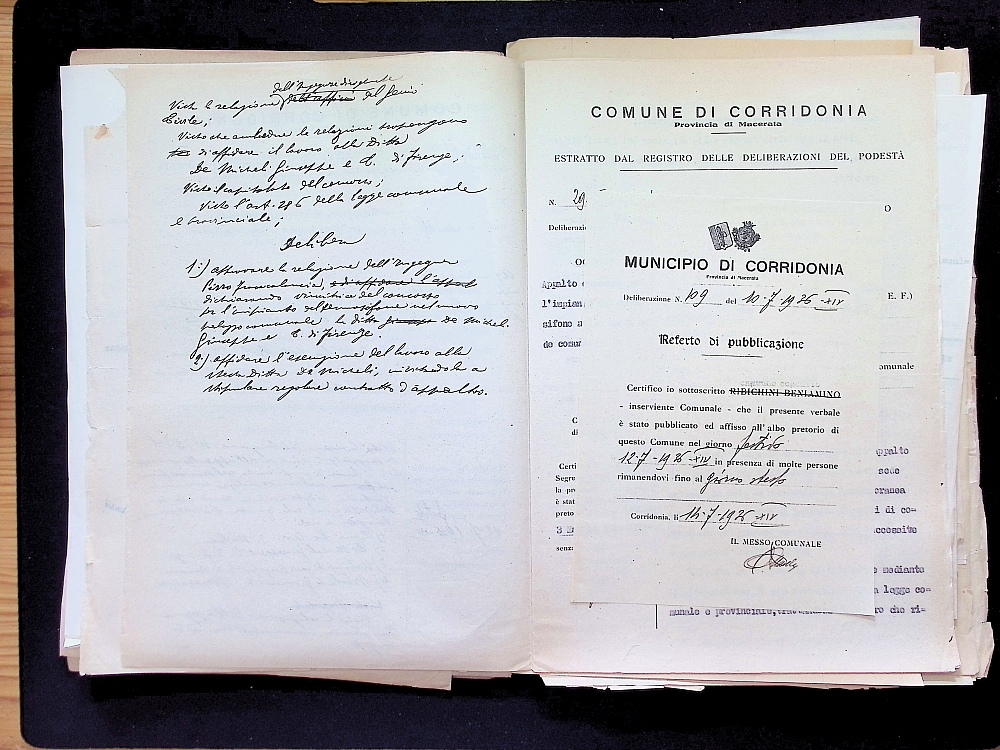 dell'Ingegnere dirigente
Vista la relazione dell'ufficio del Genio
Civile;
Visto che ambedue le relazioni propongono
di affidare il lavoro alla Ditta
De Micheli Giuseppe e C. di Firenze;
Visto il capitolato del concorso;
Visto l'art. 286 della legge comunale
e provinciale;
Delibera
1:) approvare la relazione dell'Ingegner
Pirro Francalancia, e di affidare l'appal
dichiarando vincitrice del concorso
per l'impianto del termosifone nel nuovo
palazzo comunale la ditta Giuseppe De Micheli
Giuseppe e C. di Firenze.
2:) affidare l'esecuzione del lavoro alla
stessa Ditta De Micheli, invitandola a
stipulare regolare contratto d'appalto.
COMUNE DI CORRIDONIA
Provincia di Macerata
ESTRATTO DAL REGISTRO DELLE DELIBERAZIONI DEL PODESTÀ
N. 29
O
Deliberazi
OG
Appalto
E. F.)
l'impian
sifono
de comu
omunale
C
di
Certi
Segre
la pr
è stat
preto
senz
ppalto
sede
oranea
i di co-
ccessite
e mediante
a legge co=
munale e provinciale,
ro che ri-
MUNICIPIO DI CORRIDONIA
Provincia di Macerata
Deliberazione N. 109 del 10-7-1936-XIV
Referto di pubblicazione
Certifico io sottoscritto RIBICHINI BENIAMINO
- inserviente Comunale - che il presente verbale
è stato pubblicato ed affisso all'albo pretorio di
questo Comune nel giorno festivo
12-7-1936-XIV in presenza di molte persone
rimanendovi fino al giorno stesso
Corridonia, li 14-7-1936-XIV
IL MESSO COMUNALE